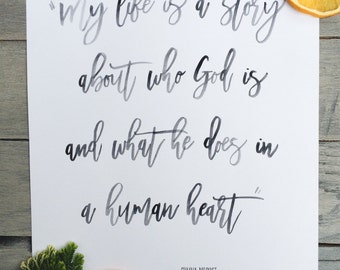 "My life is a story
about who God is
and what he does in
a human heart"